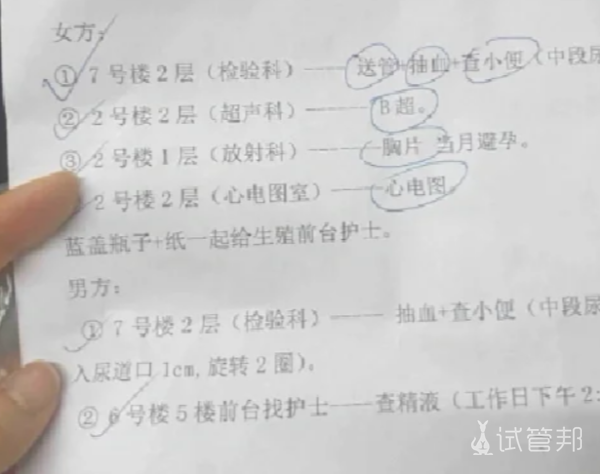 女方：
① 7号楼2层（检验科）——送管+抽血+查小便（中段尿
② 2号楼2层（超声科）——B超。
③ 2号楼1层（放射科）——胸片 当月避孕。
2号楼2层（心电图室）——心电图
蓝盖瓶子+纸一起给生殖前台护士。
男方：
① 7号楼2层（检验科）—— 抽血+查小便（中段尿
入尿道口1cm,旋转2圈）。
② 6号楼5楼前台找护士——查精液（工作日下午2:
试管邦